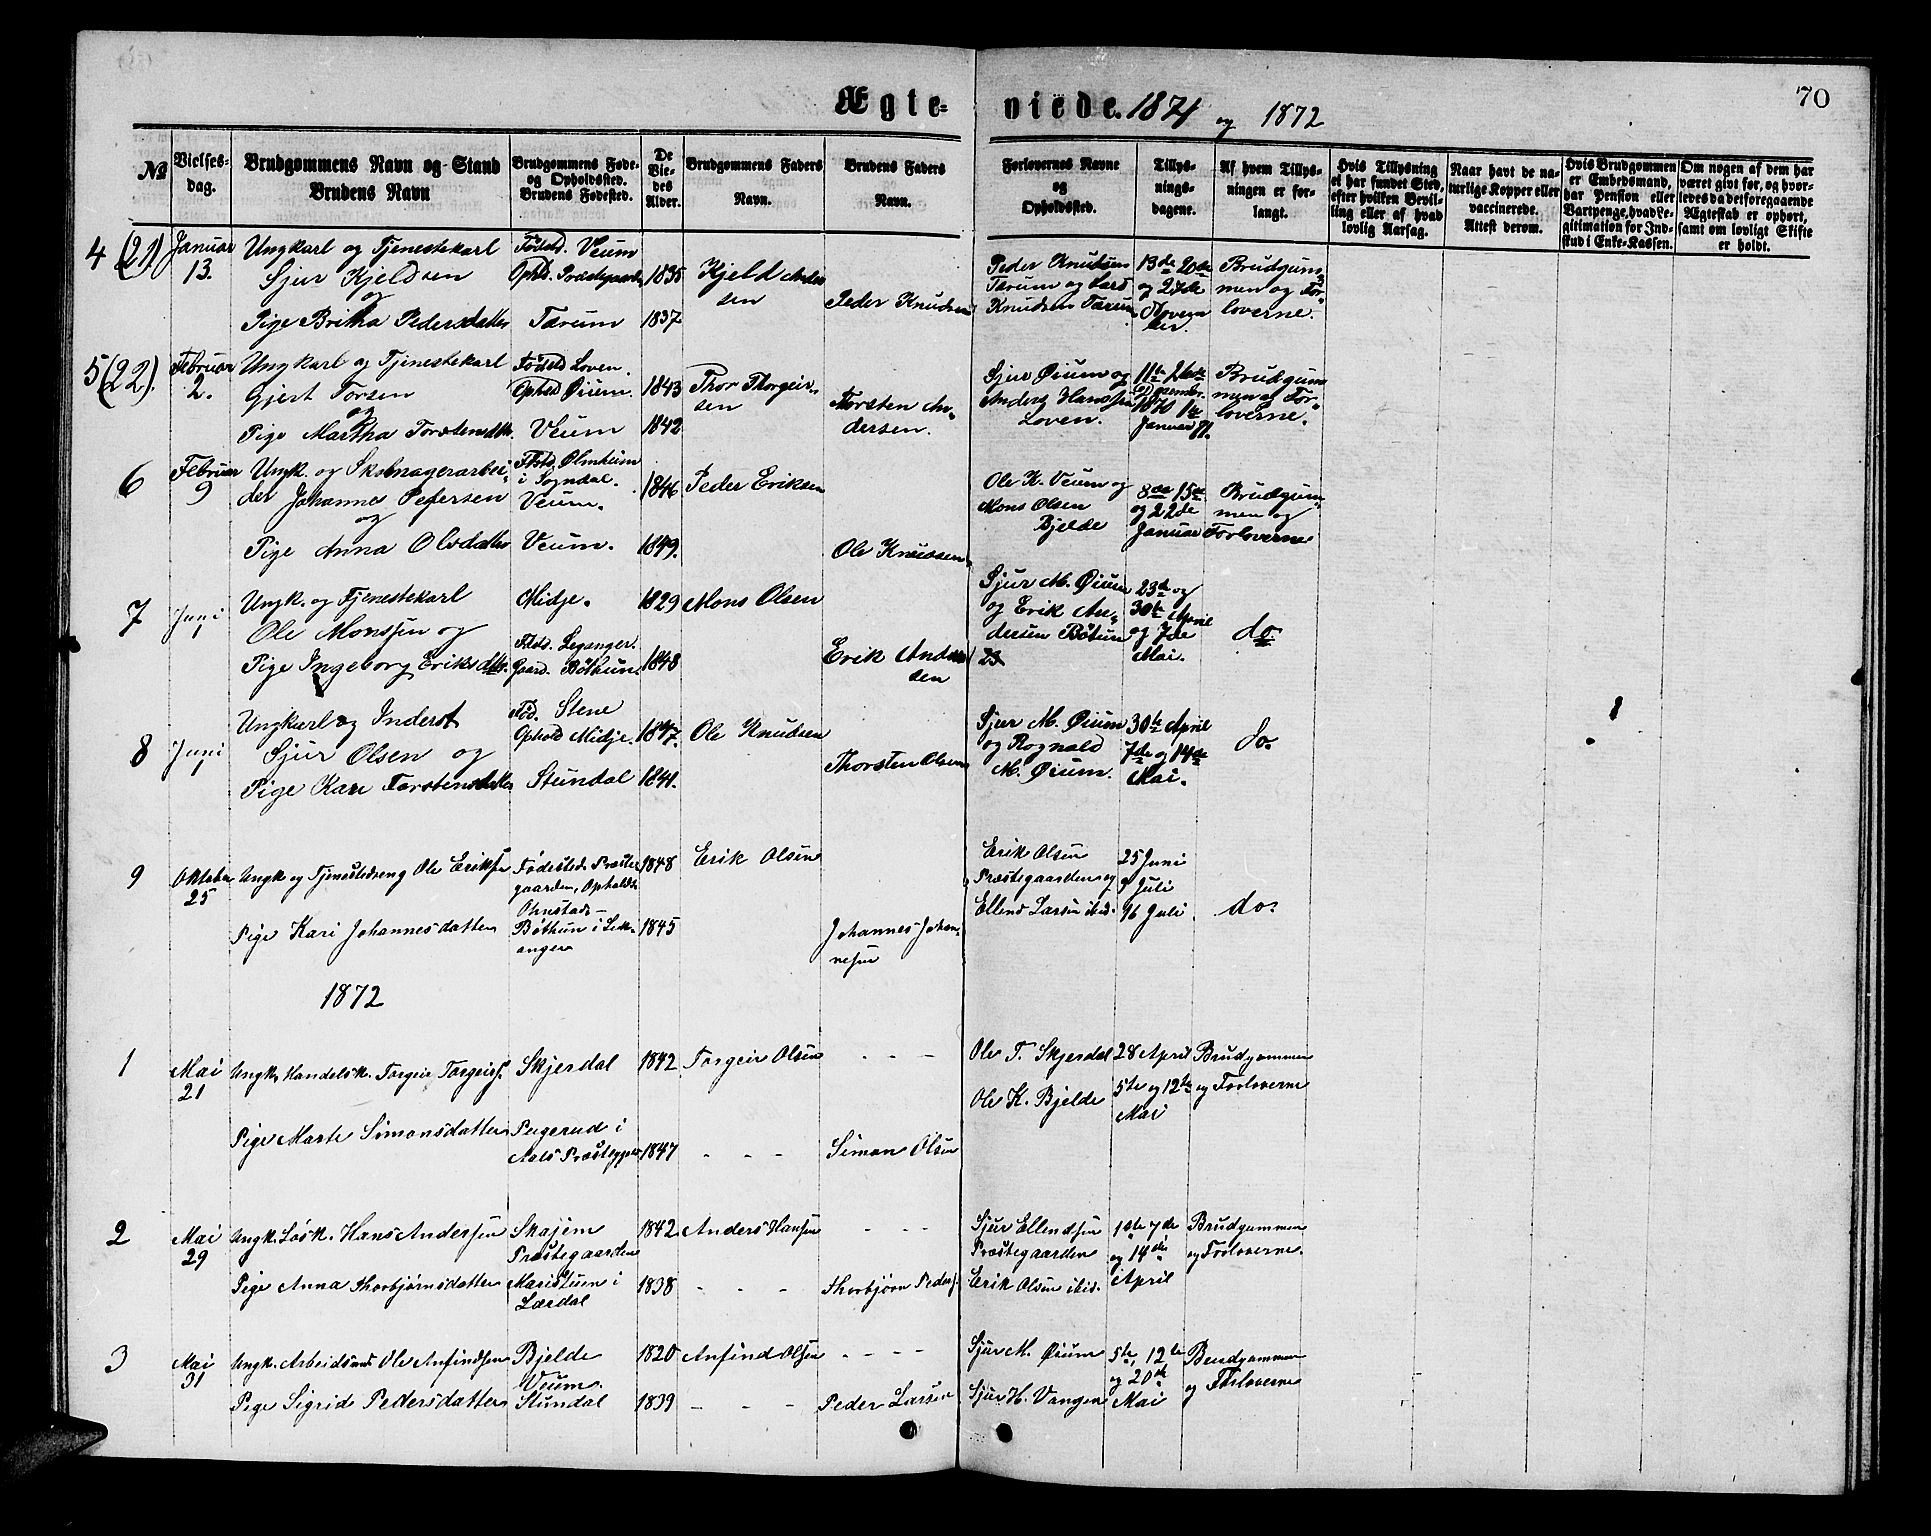 70
Ægteviede. 1871 og 1872
№
Vielses-
dag.
Brudgommens Navn og Stand
Brudens Navn
Brudgommens Føde-
og Opholdsted.
Brudens Fødested.
De
Vie-
des
Alder.
Brudgommens Faders
Navn.
Brudens Faders
Navn.
Forlovernes Navne
og
Opholdssted.
Tillys-
nings-
dagene.
Af hvem Tillys-
ningen er for-
langt.
Hvis Tillysning
ei har fundet Sted,
efter hvilken Bevil-
ling eller af hvad
lovlig Aarsag.
Naar havt de na-
turlige Kopper eller
vaccinerede.
Attest derom.
Hvis Brudgommen
er Embedsmand,
har Pension eller
Vartpenge, hvad Le-
gitimation for Ind-
skud i Enke-Kassen.
Om nogen af dem har
været givt før, og hvor-
ledes da det foregaaende
Ægteskab er ophørt,
samt om lovligt Skifte
er holdt.
4 (21)
Januar
13.
Ungkarl og Tjenestekarl
Sjur Kjeldsen
og
Pige Britha Pedersdatter
Fødstd. Veum
Ophd. Præstegaarden
Tærum
1835
1837
Kjeld Ander
sen
Peder Knudsen
Peder Knudsen
Tærum og Lars
Knudsen Tærum
13de 20de
og 27de
Novem
ber.
Brudgum-
men og For-
loverne.
5 (22).
Februar
2.
Ungkarl og Tjenestekarl
Gjert Torsen
og
Pige Martha Torstensdtr.
Fødstd Loven.
Ophd Øium.
Veum
1843
1842
Thor Thorgeir-
sen
Torsten An-
dersen.
Sjur Øium og
Anders Hanssen
Loven.
11te 26de
Dezember.
1870 1te
Januar 71.
Brudgum
men af For-
loverne.
6
Februar
9
Ungk. og Skomagerarbei-
der Johannes Petersen
og
Pige Anna Olsdatter
Fstd. Ølmheim
i Sogndal.
Veum.
Veum.
1846
1849.
Peder Eriksen
Ole Knudsen
Ole K. Veum og
Mons Olsen
Bjelde
8de 15de
og 22de
Januar
Brudgum-
men og
Forloverne
7
Juni
1
Ungk. og Tjenestekarl
Ole Monssen og
Pige Ingeborg Eriksdtr.
Midje.
Fstd. Leganger.
Gaard. Bøthun.
1829
1848
Mons Olsen
Erik Ander
sen
Sjur M. Øium
og Erik An-
dersen Bøtun
23
23de og
30te April
og 7de
Mai.
do
8
Juni
1
Ungkarl og Inderst
Sjur Olsen og
Pige Kari Torstensdatter
Fød. Stene
Ophold Midje.
Stundal
1847.
1841.
Ole Knudsen
Thorsten Olsen
Sjur M. Øium
og Rognald
M. Øium.
30te April
7de og 14de
Mai.
do.
9
Oktober
25
Ungk og Tjenestedreng Ole Eriksen
Pige Kari Johannesdatter
Fødested. Præste
gaarden, Opholds.
Ohnstad-
Bøthun i Lek-
anger
1848
1845
Erik Olsen
Johannes Johan-
nesen
Erik Olsen
Præstegaarden og
Ellend Larsen ibid.
25 Juni
9 Juli
16 Juli
do.
1872
1
Mai
21
Ungk. Handelsk. Torgeir Torgeirs.
Pige Marte Simonsdatter
Skjerdal
Pugerud i
Aals Præstegj.
1842
1847
Torgeir Olsen
- - -
- - -
Simon Olsen
Ole T. Skjerdal
Ole K. Bjelde
28 April
5te og 12te
Mai
Brudgommen
og Forloverne
2
Mai
29
Ungk. Løsk. Hans Anderssen
Pige Anna Thorbjørnsdatter
Skajem
Præstegaarden
Maristuen i
Lærdal
1842
1838
Anders Hansen
- - -
- - -
Thorbjørn Peders.
Sjur Ellendsen
Præstegaarden
Erik Olsen ibid.
1ste 7de
og 14de
April
Brudgommen
og Forloverne.
3
Mai
31
Ungk. Arbeidsmd. Ole Anfindsen
Pige Sigrid Pedersdatter
Bjelde
Veum.
Stundal
1820
1839
Anfind Olsen
- - - -
- - -
Peder Larsen
Sjur M. Øium
Sjur H. Vangen
5te, 12te
og 20de
Mai
Brudgommen
og Forloverne